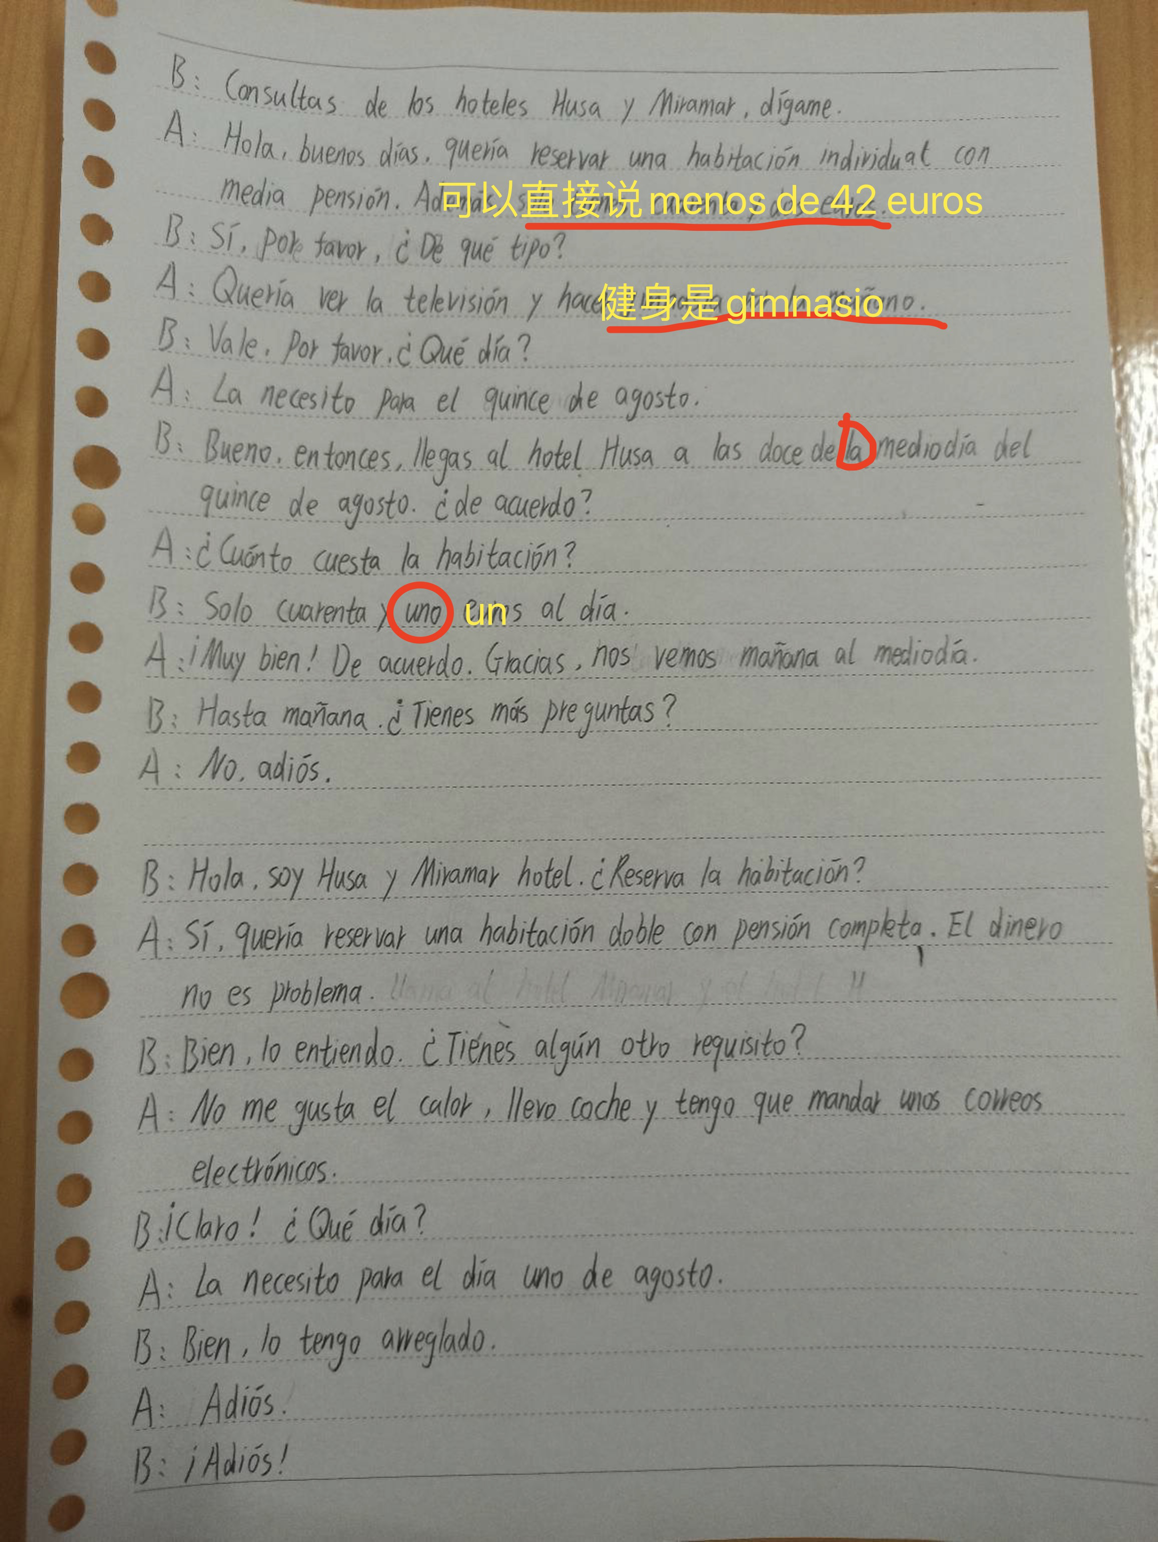 B: Consultas de los hoteles Husa y Miramar, dígame.
A: Hola, buenos días, quería reservar una habitación individual con
media pensión.
可以直接说 menos de 42 euros
B: Sí, por favor, ¿De qué tipo?
A: Quería ver la televisión y
健身是 gimnasio
B: Vale, Por favor, ¿Qué día?
A: La necesito para el quince de agosto.
B: Bueno, entonces, llegas al hotel Husa a las doce de la mediodía del
quince de agosto. ¿de acuerdo?
A: ¿Cuánto cuesta la habitación?
B: Solo cuarenta y uno euros al día.
un
A: ¡Muy bien! De acuerdo. Gracias, nos vemos mañana al mediodía.
B: Hasta mañana. ¿Tienes más preguntas?
A: No, adiós.
B: Hola, soy Husa y Miramar hotel. ¿Reserva la habitación?
A: Sí, quería reservar una habitación doble con pensión completa. El dinero
no es problema.
B: Bien, lo entiendo. ¿Tienes algún otro requisito?
A: No me gusta el calor, llevo coche y tengo que mandar unos correos
electrónicos.
B: ¡Claro! ¿Qué día?
A: La necesito para el día uno de agosto.
B: Bien, lo tengo arreglado.
A: Adiós.
B: ¡Adiós!